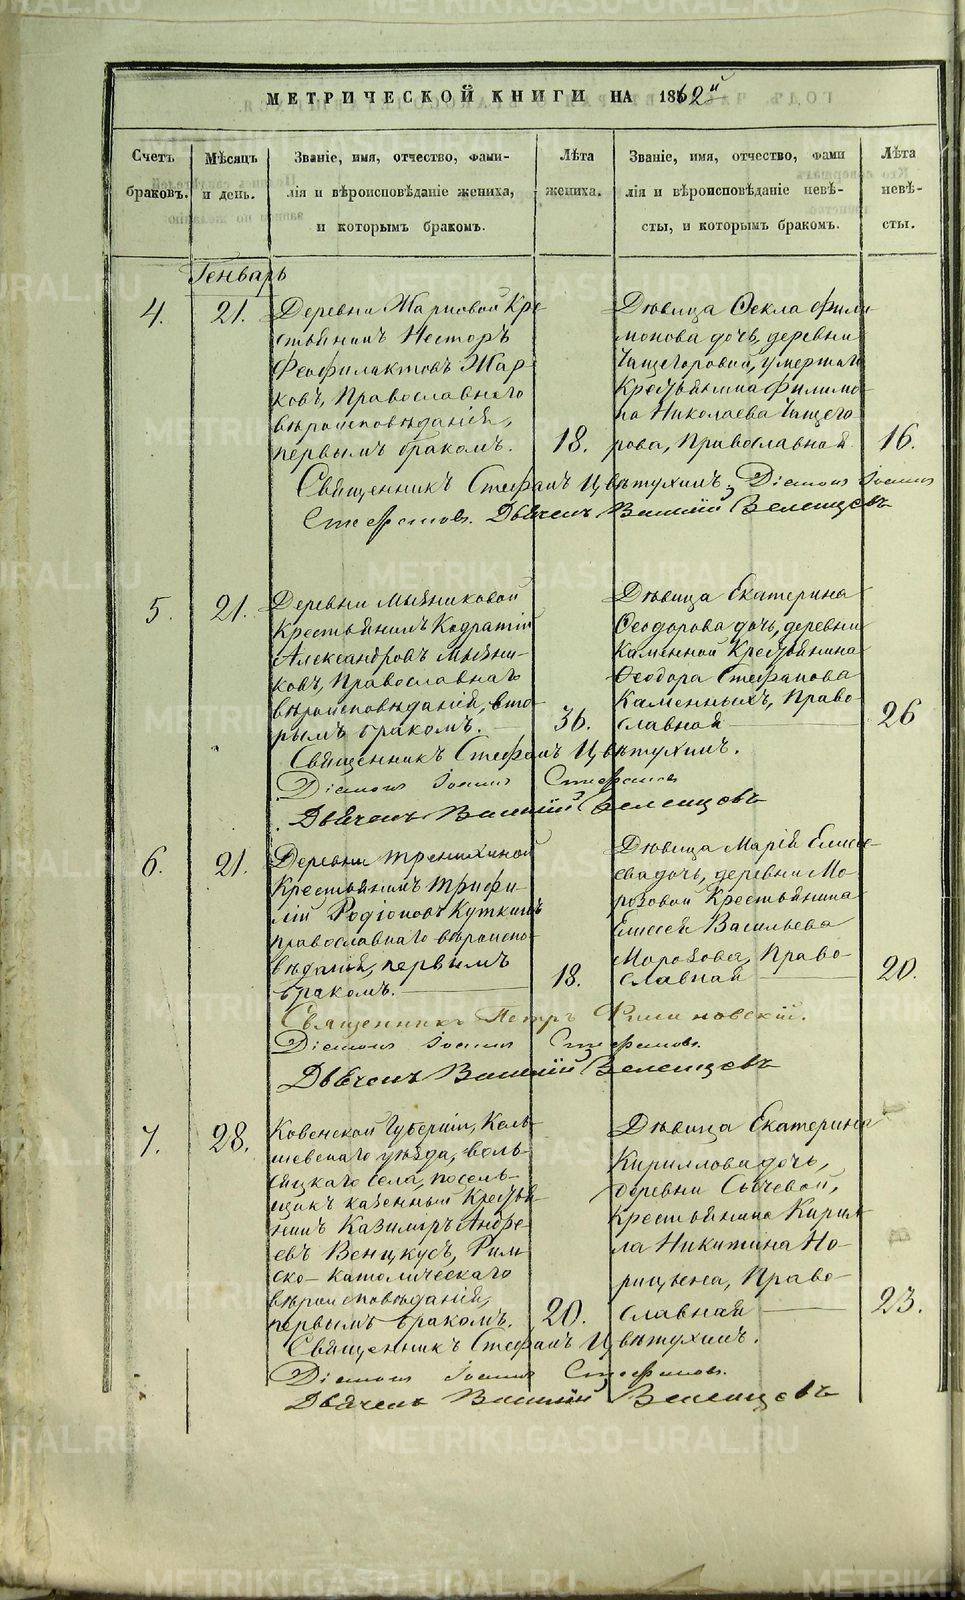 МЕТРИЧЕСКОЙ КНИГИ НА 1862й
Счетъ браковъ.
Мѣсяцъ и день.
Званіе, имя, отчество, фами-
лія и вѣроисповѣданіе жениха,
и которымъ бракомъ.
Лѣта жениха.
Званіе, имя, отчество, фами
лія и вѣроисповѣданіе невѣ-
сты, и которымъ бракомъ.
Лѣта невѣ-
сты.
Генварь
4.
21.
Деревни Жарковой Кре
стьянинъ Несторъ
Феофилактовъ Жар
ковъ, Православнаго
вѣроисповѣданія,
первымъ бракомъ.
18.
Дѣвица Ѳекла Фили
монова дочь, деревни
Чащегоровой, умершаго
Крестьянина Филимо
на Николаева Чащего
рова, Православная
16.
Священникъ Стефанъ Цвѣтухинъ; Діаконъ Іоаннъ
Стефановъ. Дьячекъ Василій Зеленцовъ
5.
21.
Деревни Мызниковой
Крестьянинъ Кодратій
Александровъ Мызни-
ковъ, Православнаго
вѣроисповѣданія, вто-
рымъ бракомъ.
36.
Дѣвица Екатерина
Ѳеодорова дочь, деревни
Каменной Крестьянина
Ѳеодора Стефанова
Каменныхъ, Право-
славная
26
Священникъ Стефанъ Цвѣтухинъ.
Діаконъ Іоаннъ Стефановъ
Дьячекъ Василій Зеленцовъ
6.
21.
Деревни Тренихиной
Крестьянинъ Трифи-
лій Родіоновъ Куткинъ
православнаго вѣроиспо-
вѣданія, первымъ
бракомъ.
18.
Дѣвица Марія Елисе-
ева дочь, деревни Мо-
розовой Крестьянина
Елисея Васильева
Морозова, Право-
славная
20.
Священникъ Петръ
Діаконъ Іоаннъ Стефановъ.
Дьячекъ Василій Зеленцовъ
7.
28.
Ковенской Губерніи,
уѣзда,
села, посель-
щикъ казенный Крестья
нинъ Казимиръ Андре
евъ Венцкусъ, Рим
ско-католическаго
вѣроисповѣданія,
первымъ бракомъ.
20.
Дѣвица Екатерина
Кириллова дочь,
деревни Сычевой,
Крестьянина Кирил
ла Никитина Но-
рицына, Право-
славная
23.
Священникъ Стефанъ Цвѣтухинъ.
Діаконъ Іоаннъ Стефановъ.
Дьячекъ Василій Зеленцовъ